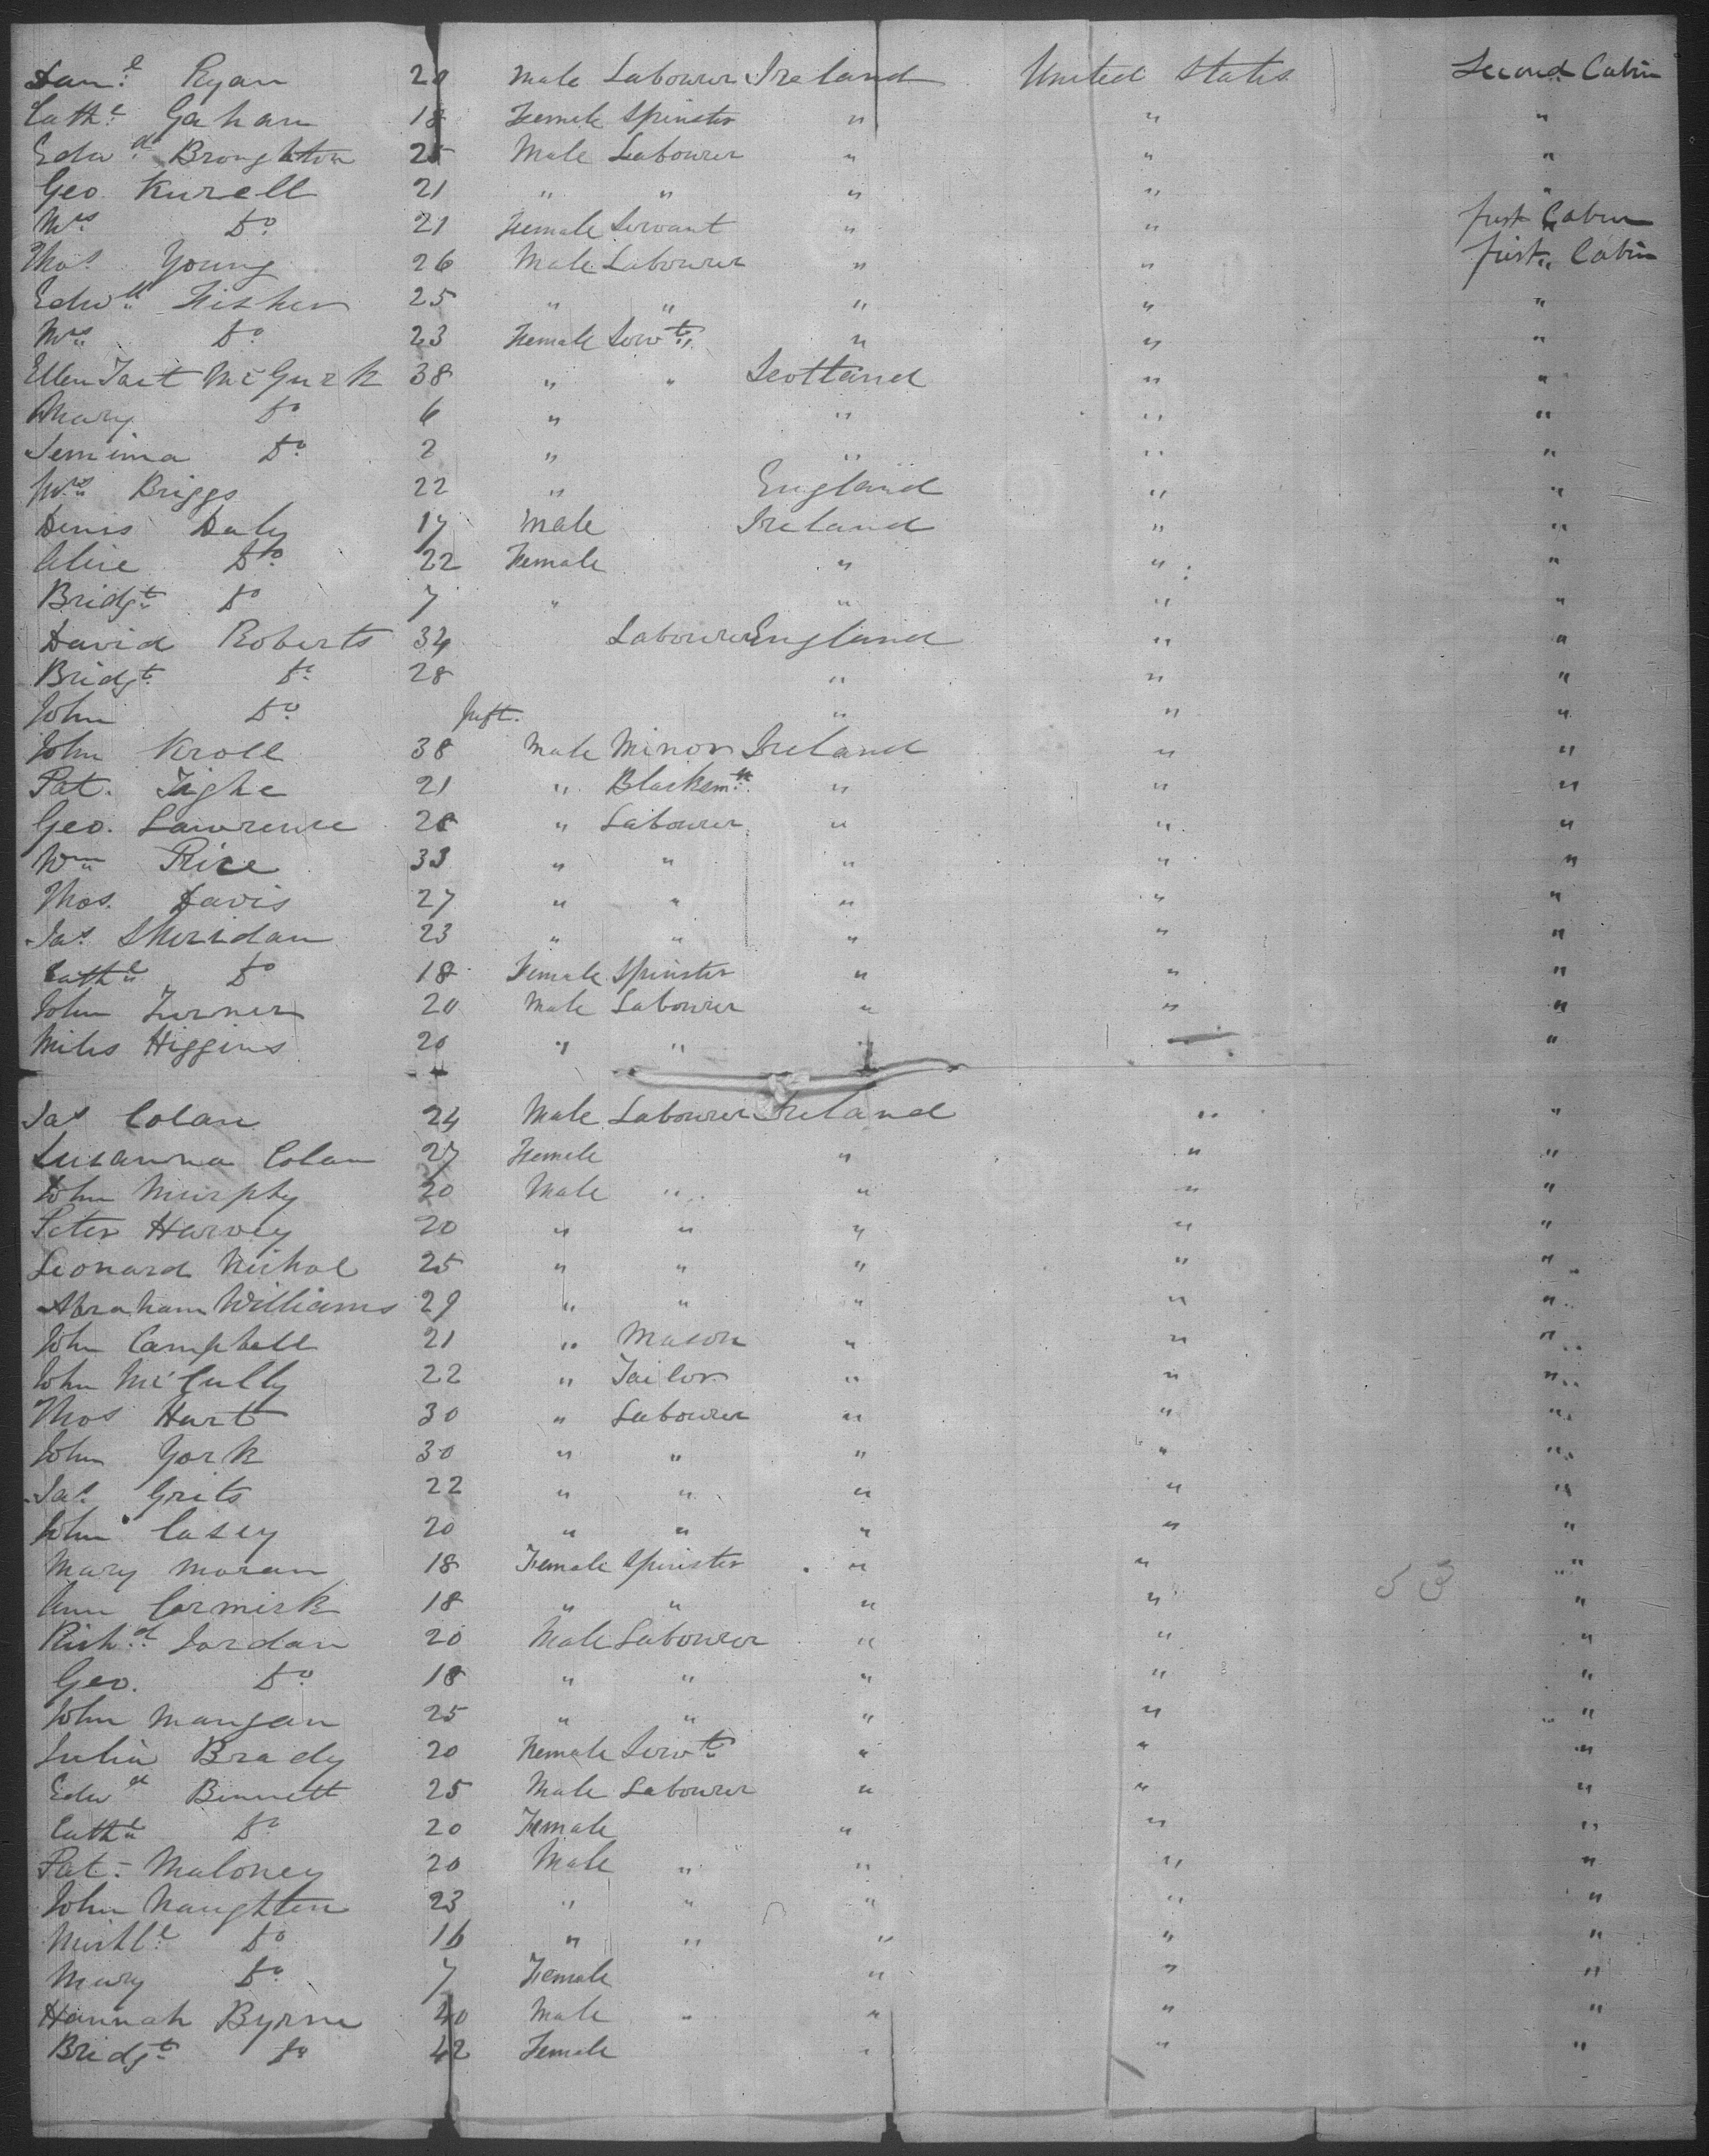 Danl. Ryan 20 Male Labourer Ireland United States Second Cabin
Cathe. Gahan 18 Female Spinster " " "
Edwd. Broughton 25 Male Labourer " " "
Geo. Kurell 21 " " " " "
Mrs. Do. 21 Female Servant " " first Cabin
Thos. Young 26 Male Labourer " " first Cabin
Edwd. Fisher 25 " " " " "
Mrs. Do 23 Female Servt. " " "
Ellen Tait McGurk 38 " " Scotland " "
Mary Do 6 " " " "
Jemima Do. 2 " " " "
Mrs. Briggs 22 " England " "
Denis Daly 17 Male Ireland " "
Alice Do. 22 Female " " "
Bridgt. Do 7 " " " "
David Roberts 34 Labourer England " "
Bridgt. Do. 28 " " "
John Do. Inft. " " "
John Kroll 38 Male Minor Ireland " "
Pat. Tighe 21 " Blacksmth. " " "
Geo. Lawrence 28 " Labourer " " "
Wm. Rice 33 " " " " "
Thos. Davis 27 " " " " "
Jas. Sheridan 23 " " " " "
Cathe. Do 18 Female Spinster " " "
John Turner 20 Male Labourer " " "
Miles Higgins 20 " " "
Jas Colan 24 Male Labourer Ireland " "
Susanna Colan 27 Female " " "
John Murphy 20 Male " " " "
Peter Harvey 20 " " " " "
Leonard Nichol 25 " " " " "
Abraham Williams 29 " " " " "
John Campbell 21 " Mason " " "
John McCully 22 " Tailor " " "
Thos Hart 30 " Labourer " " "
John York 30 " " " " "
Jas. Grits 22 " " " " "
John Casey 20 " " " " "
Mary Moran 18 Female Spinster " " "
Ann Cormick 18 " " " " "
Richd. Jordan 20 Male Labourer " " "
Geo. Do 18 " " " " "
John Mangan 25 " " " " "
Julia Brady 20 Female Servt. " " "
Edwd Bennett 25 Male Labourer " " "
Cathe. Do. 20 Female " " "
Pat. Maloney 20 Male " " " "
John Naughten 23 " " " " "
Michl. Do 16 " " " " "
Mary Do. 7 Female " " "
Hannah Byrne 40 Male " " " "
Bridgt. Do 42 Female " " "